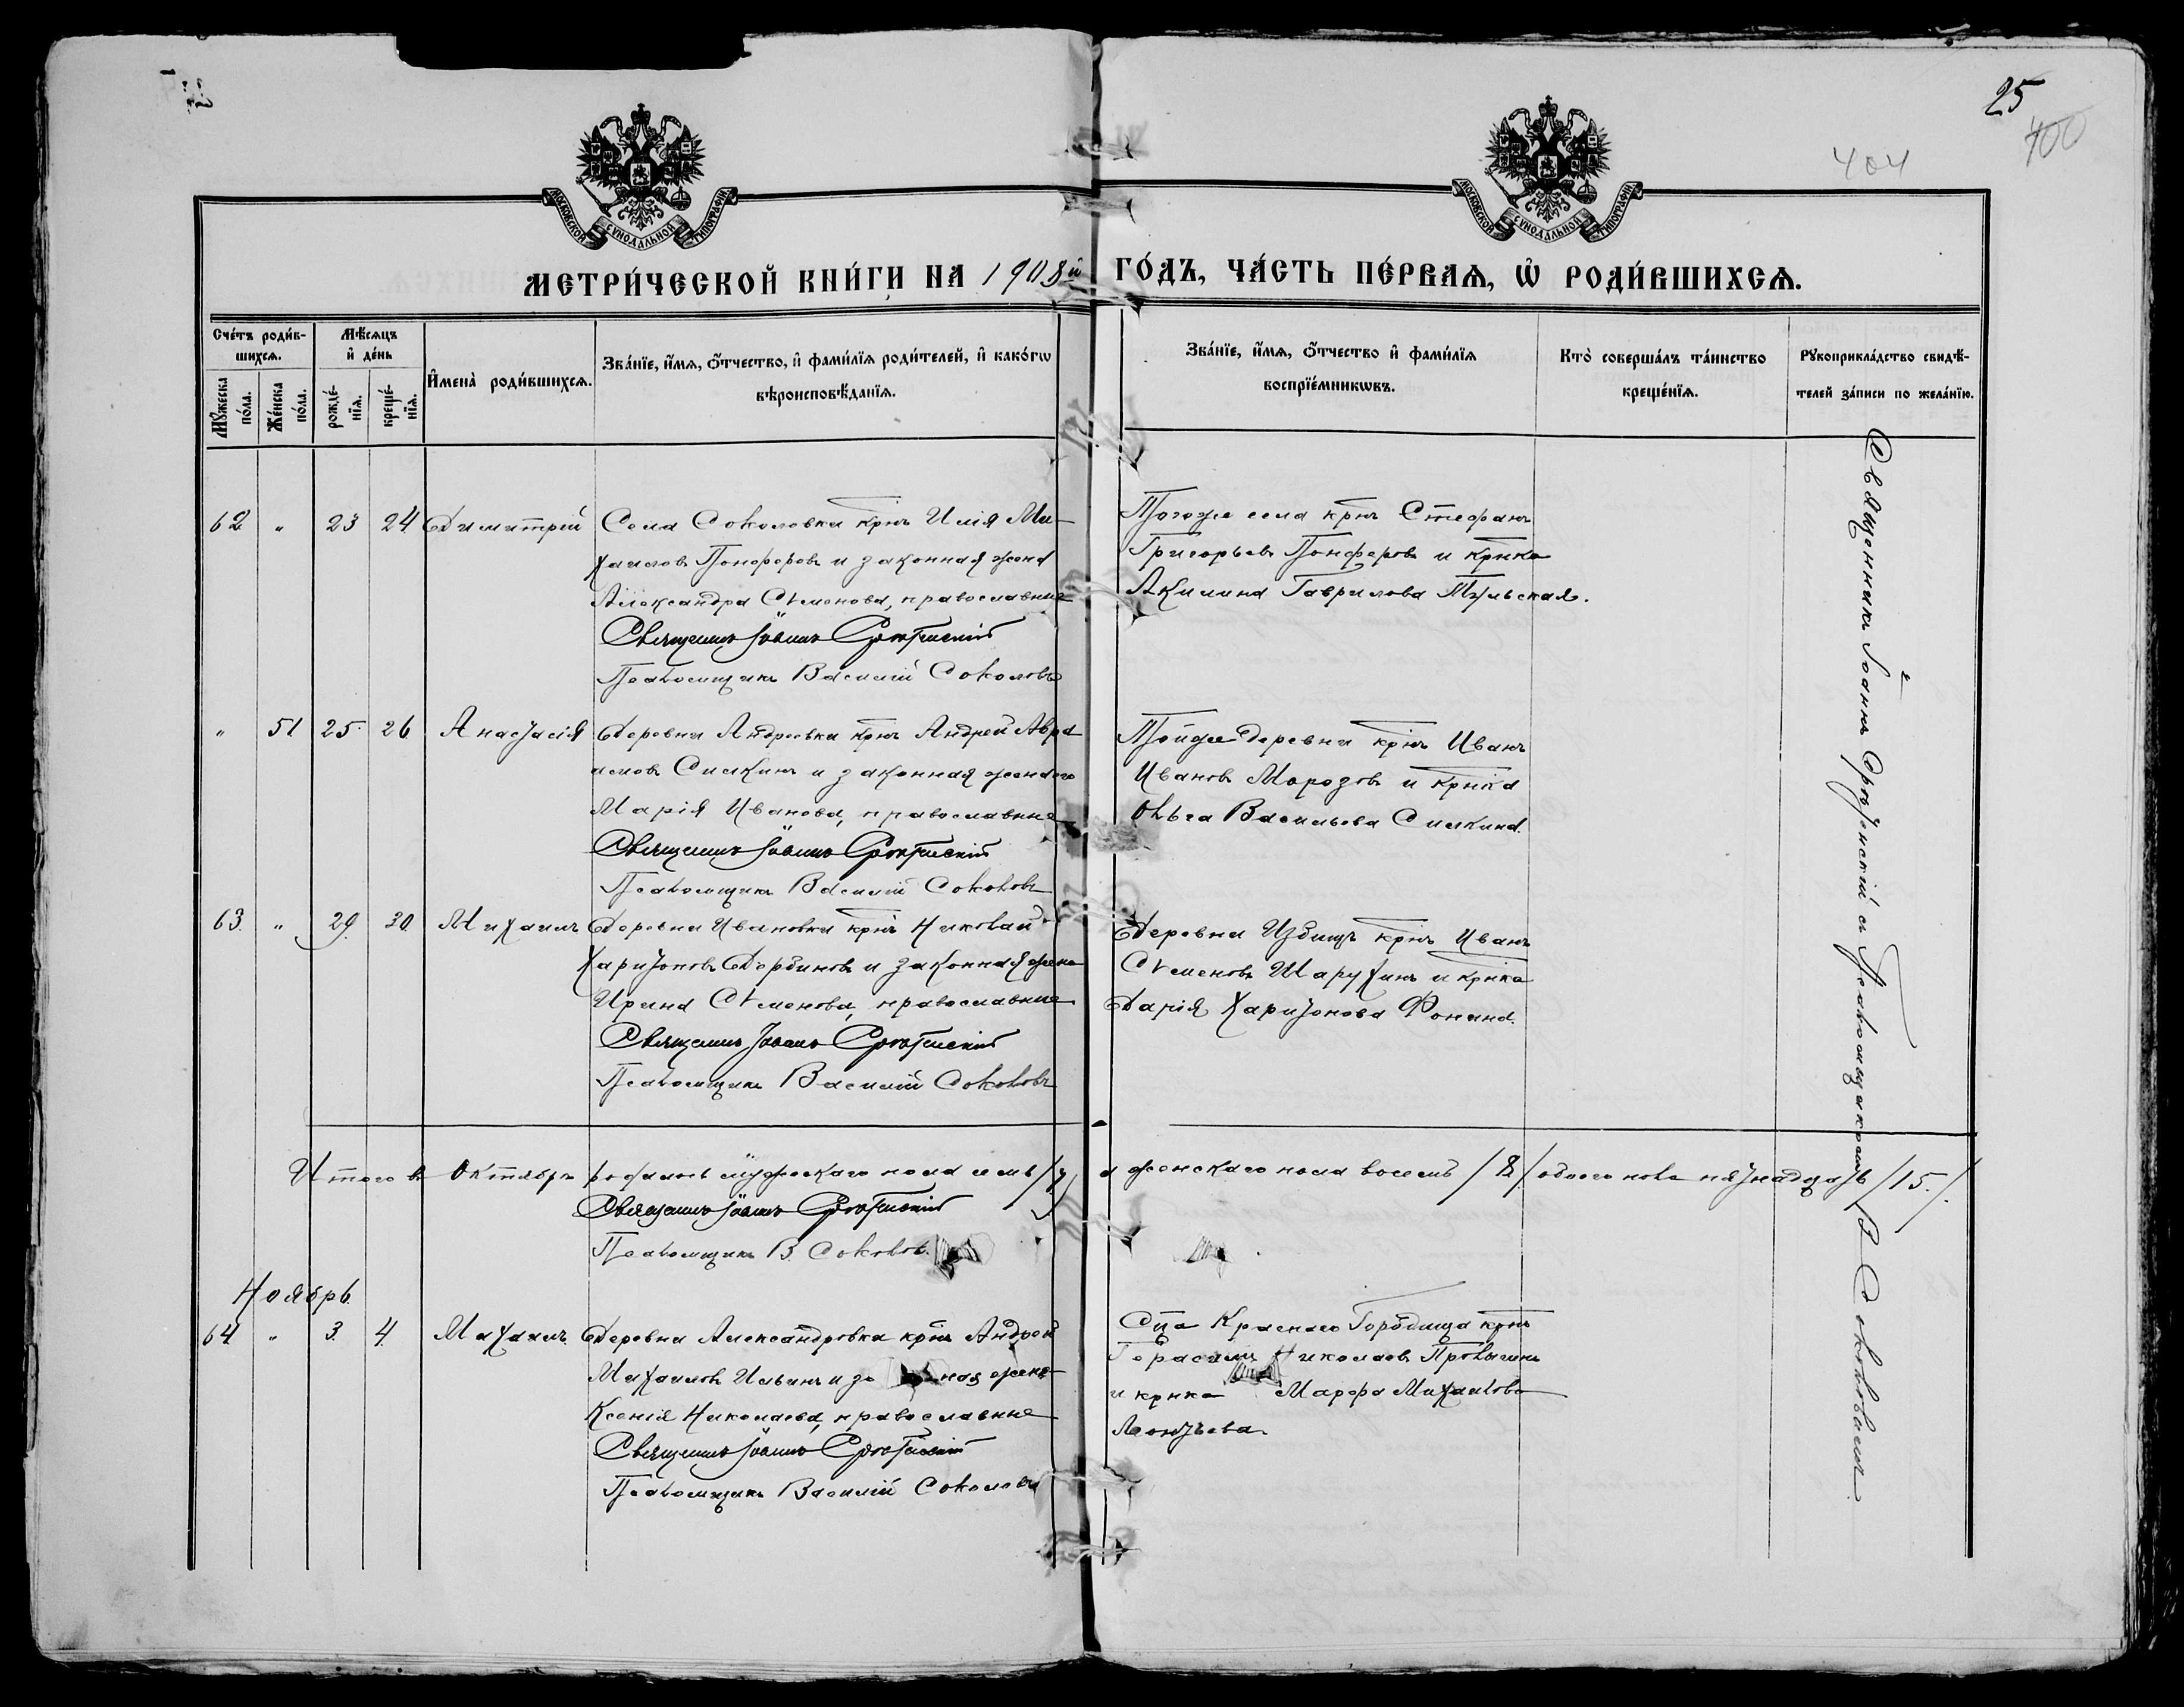 25
404
400
МОСКОВСКОЙ СѴНОДАЛЬНОЙ ТИПОГРАФІИ
МОСКОВСКОЙ СѴНОДАЛЬНОЙ ТИПОГРАФІИ
МЕТРИ́ЧЕСКОЙ КНИ́ГИ НА 1908й ГО́ДЪ, ЧА́СТЬ ПЕ́РВАѦ, Ѡ҆ РОДИ́ВШИХСѦ.
Сче́тъ роди́в-
шихсѧ.
Мꙋ́жеска по́ла.
Же́нска по́ла.
Мѣ́сѧцъ
и҆ де́нь
рожде́-нїѧ.
креще́-нїѧ.
И҆мена̀ роди́вшихсѧ.
Зва́нїе, и҆́мѧ, ѻ҆́тчество, и҆ фами́лїѧ роди́телей, и҆ како́гѡ
вѣроисповѣ́данїѧ.
Зва́нїе, и҆́мѧ, ѻ҆́тчество и҆ фами́лїѧ
воспрїе́мникѡвъ.
Кто̀ соверша́лъ та́инство
креще́нїѧ.
Рꙋкоприкла́дство свидѣ́-
телей за́писи по жела́нїю.
62 " 23 24 Димитрій Села Соколовки крнъ Илія Ми-
хаиловъ Понферовъ и законная жена
Александра Семенова, православные
Священникъ Іоаннъ
Псаломщикъ Василій Соколовъ
Тогоже села крнъ Стефанъ
Григорьевъ Понферовъ и крнка
Акилина Гаврилова Тульская.
" 51 25 26 Анастасія Деревни Андреевки крнъ Андрей Авра
амовъ Силкинъ и законная жена его
Марія Иванова, православные
Священникъ Іоаннъ
Псаломщикъ Василій Соколовъ
Тойже деревни крнъ Иванъ
Ивановъ Морозовъ и крнка
Ольга Васильева Силкина.
63. " 29. 30. Михаилъ Деревни Ивановки крнъ Николай
Харитоновъ Дербиновъ и законная жена
Ирина Семенова, православные
Священникъ Іоаннъ
Псаломщикъ Василій Соколовъ
Деревни Избищъ крнъ Иванъ
Семеновъ Шарухинъ и крнка
Дарія Харитонова Фонина.
Итого въ Октябрѣ родилось мужескаго пола семь /7/ а женскаго пола восемь /8/ обоего пола пятнадцать /15./
Священникъ Іоаннъ
Псаломщикъ В. Соколовъ.
Ноябрь.
64 " 3. 4. Михаилъ Деревни Александровки крнъ Андрей
Михаиловъ Ильинъ и за ная жена
Ксенія Николаева, православные
Священникъ Іоаннъ
Псаломщикъ Василій Соколовъ
Сца Краснаго Городища крнъ
Герасимъ Николаевъ
и крнка Марфа Михаилова
Леонтьева.
Священникъ Іоаннъ съ Псаломщикомъ В Соколовымъ.